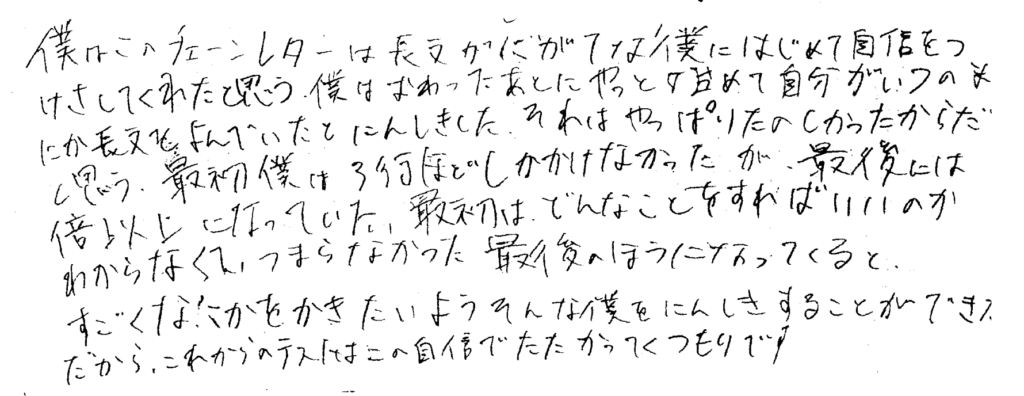 僕はこのチェーンレターは長文がにがてな僕にはじめて自信をつ
けさしてくれたと思う.僕はおわったあとにやっと 改めて自分がいつのま
にか長文をよんでいたとにんしきした.それはやっぱりたのしかったからだ
と思う.最初僕は3行ほどしかかけなかったが、最後には
倍以上になっていた,最初は、どんなことをすればいいのか
わからなくて,つまらなかった 最後のほうになってくると、
すごくなにかをかきたいようそんな僕をにんしきすることができた
だから、これからのテストはこの自信でたたかってくつもりです